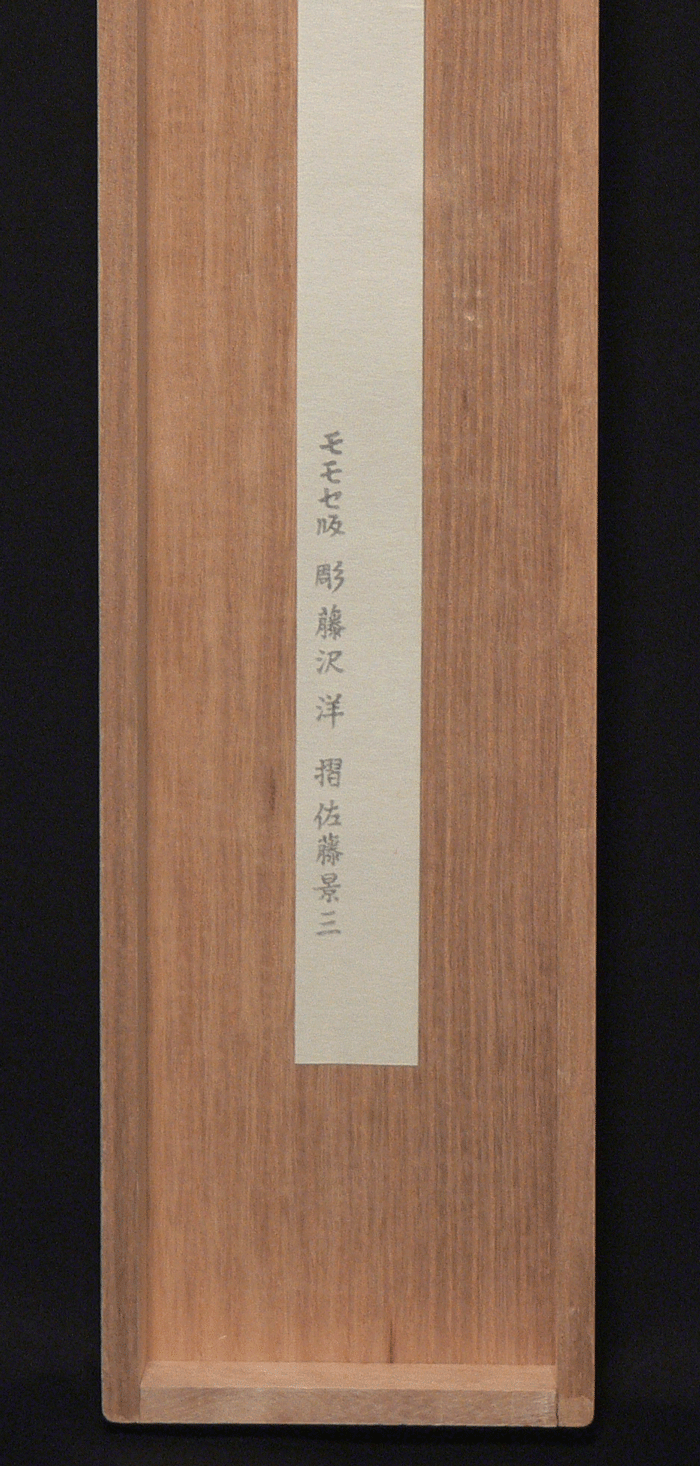 モモセ版 彫 藤沢 洋 摺 佐藤景三